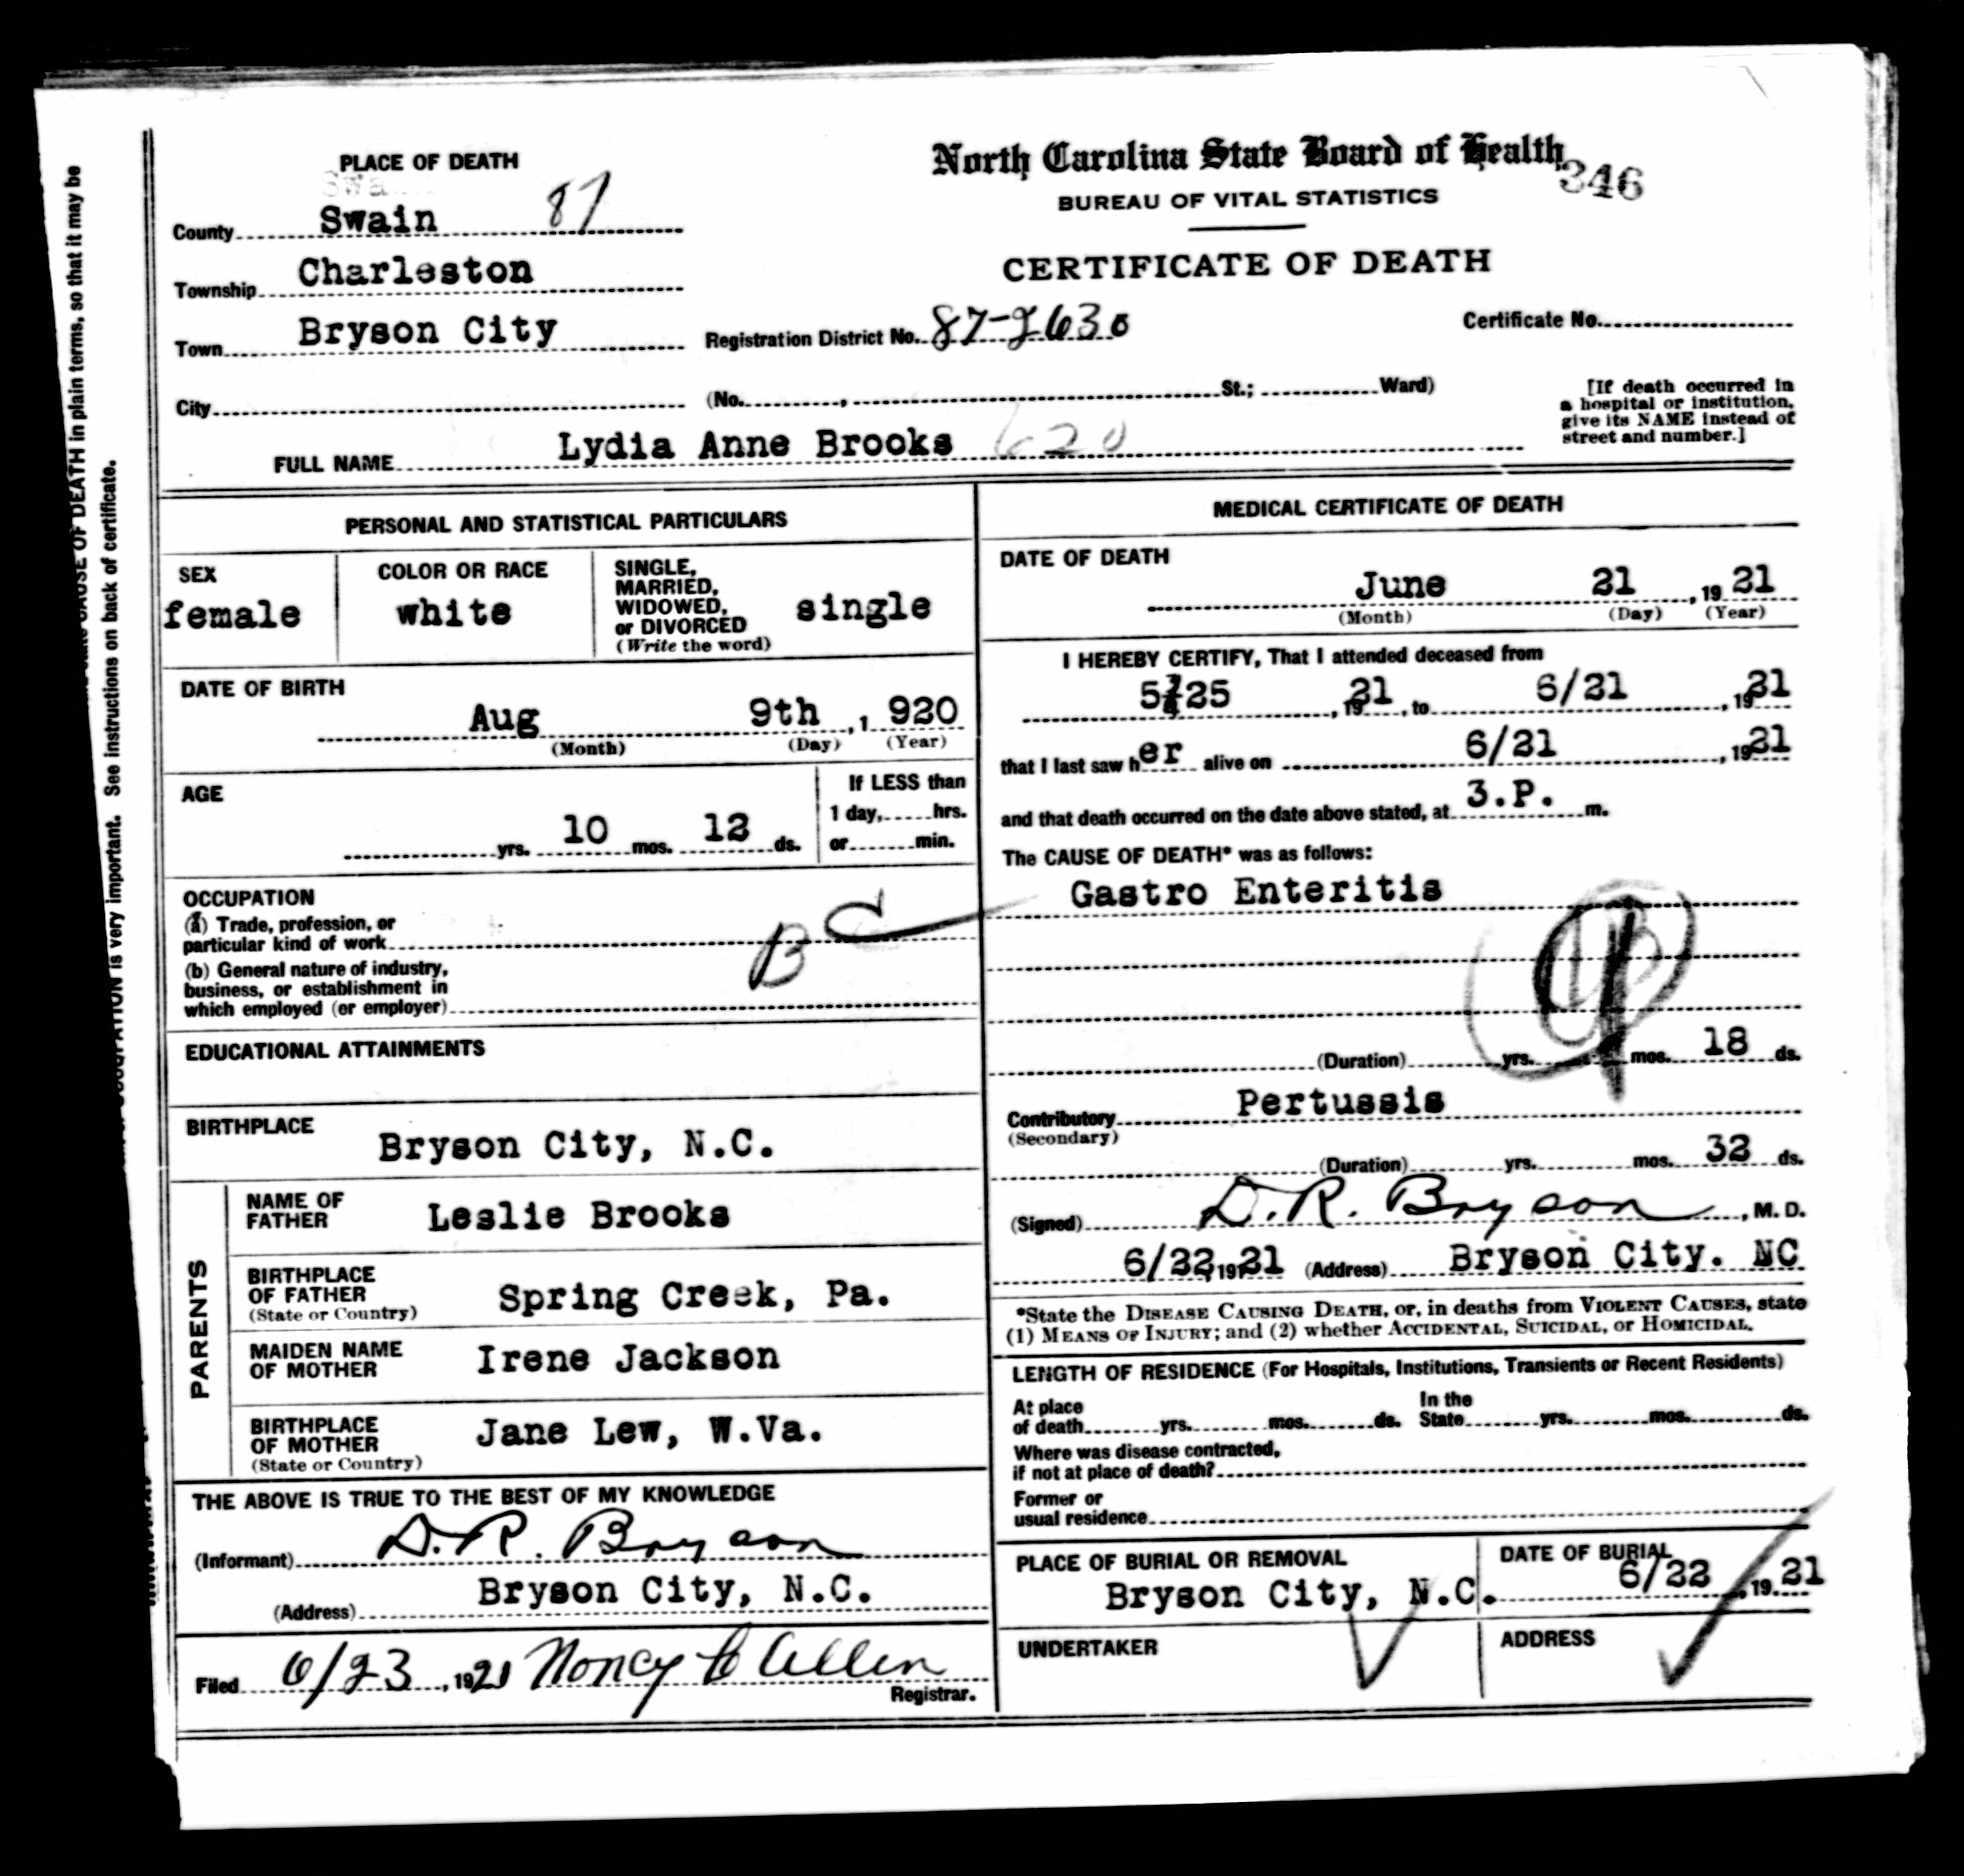 PLACE OF DEATH
North Carolina State Board of Health
346
BUREAU OF VITAL STATISTICS
CERTIFICATE OF DEATH
County Swain 87
Township Charleston
Town Bryson City
Registration District No. 87-2630
Certificate No.
City (No. , St.; Ward)
[If death occurred in
a hospital or institution,
give its NAME instead of
street and number.]
FULL NAME Lydia Anne Brooks 620
PERSONAL AND STATISTICAL PARTICULARS
SEX
female
COLOR OR RACE
white
SINGLE,
MARRIED,
WIDOWED,
or DIVORCED
(Write the word)
single
DATE OF BIRTH
Aug 9th , 1 920
(Month) (Day) (Year)
AGE
yrs. 10 mos. 12 ds.
If LESS than
1 day, hrs.
or min.
OCCUPATION
(a) Trade, profession, or
particular kind of work
(b) General nature of industry,
business, or establishment in
which employed (or employer)
B C
EDUCATIONAL ATTAINMENTS
BIRTHPLACE
Bryson City, N.C.
PARENTS
NAME OF
FATHER
Leslie Brooks
BIRTHPLACE
OF FATHER
(State or Country)
Spring Creek, Pa.
MAIDEN NAME
OF MOTHER
Irene Jackson
BIRTHPLACE
OF MOTHER
(State or Country)
Jane Lew, W.Va.
THE ABOVE IS TRUE TO THE BEST OF MY KNOWLEDGE
(Informant) D. R. Bryson
(Address) Bryson City, N.C.
Filed 6/23, 1921 Nancy C Allen
Registrar.
MEDICAL CERTIFICATE OF DEATH
DATE OF DEATH
June 21 , 19 21
(Month) (Day) (Year)
I HEREBY CERTIFY, That I attended deceased from
5/25 , 1921, to 6/21 , 1921
that I last saw her alive on 6/21 , 1921
and that death occurred on the date above stated, at 3.P. m.
The CAUSE OF DEATH* was as follows:
Gastro Enteritis
(Duration) yrs. mos. 18 ds.
Contributory Pertussis
(Secondary)
(Duration) yrs. mos. 32 ds.
(Signed) D. R. Bryson, M. D.
6/22, 1921 (Address) Bryson City. NC
*State the DISEASE CAUSING DEATH, or, in deaths from VIOLENT CAUSES, state
(1) MEANS OF INJURY; and (2) whether ACCIDENTAL, SUICIDAL, or HOMICIDAL.
LENGTH OF RESIDENCE (For Hospitals, Institutions, Transients or Recent Residents)
At place
of death yrs. mos. ds.
In the
State yrs. mos. ds.
Where was disease contracted,
if not at place of death?
Former or
usual residence
PLACE OF BURIAL OR REMOVAL
Bryson City, N.C.
DATE OF BURIAL
6/22 , 19 21
UNDERTAKER
ADDRESS
CAUSE OF DEATH in plain terms, so that it may be
OCCUPATION is very important. See instructions on back of certificate.